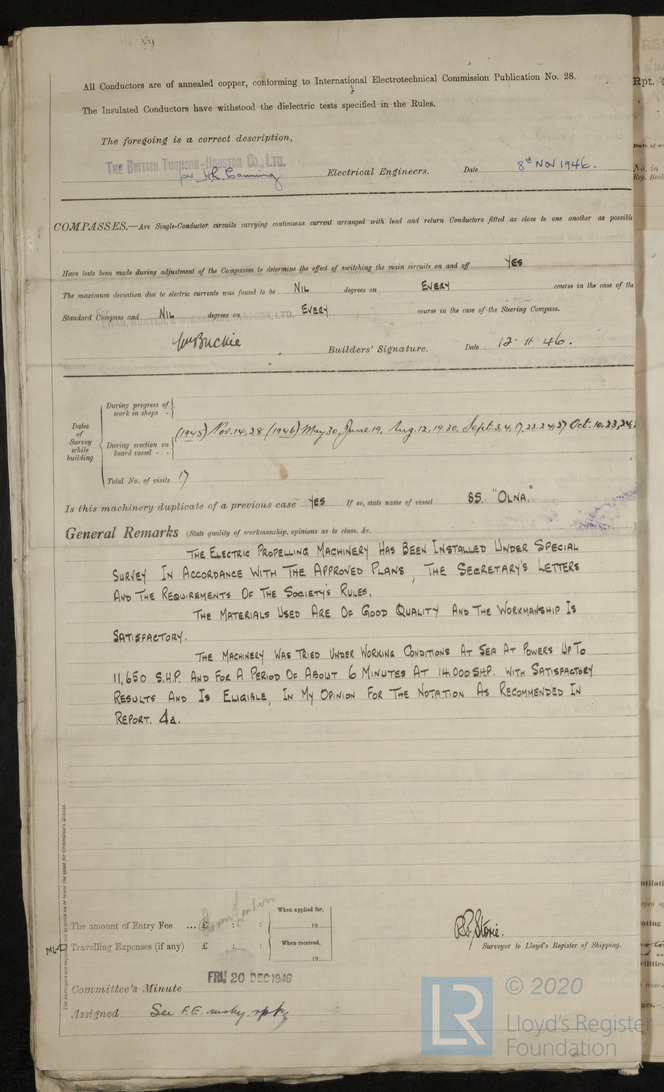 All Conductors are of annealed copper, conforming to International Electrotechnical Commission Publication No. 28.
The Insulated Conductors have withstood the dielectric tests specified in the Rules.
The foregoing is a correct description,
THE BRITISH THOMSON-HOUSTON CO., LTD.
Electrical Engineers. Date 8th NOV 1946.
COMPASSES.—Are Single-Conductor circuits carrying continuous current arranged with lead and return Conductors fitted as close to one another as possible
Have tests been made during adjustment of the Compasses to determine the effect of switching the main circuits on and off YES
The maximum deviation due to electric currents was found to be NIL degrees on EVERY course in the case of the
Standard Compass and NIL degrees on EVERY course in the case of the Steering Compass.
Wm Buckie Builders' Signature. Date 12. 11. 46.
Dates of Survey while building
During progress of work in shops - -
During erection on board vessel - -
(1945) Nov. 14, 28 (1946) May 30, June 19, Aug. 12, 19, 30, Sept. 3, 4, 17, 23, 24, 27 Oct. 10, 23, 24,
Total No. of visits 17
Is this machinery duplicate of a previous case YES If so, state name of vessel SS. "OLNA."
General Remarks (State quality of workmanship, opinions as to class, &c.
THE ELECTRIC PROPELLING MACHINERY HAS BEEN INSTALLED UNDER SPECIAL
SURVEY IN ACCORDANCE WITH THE APPROVED PLANS, THE SECRETARY'S LETTERS
AND THE REQUIREMENTS OF THE SOCIETY'S RULES.
THE MATERIALS USED ARE OF GOOD QUALITY AND THE WORKMANSHIP IS
SATISFACTORY.
THE MACHINERY WAS TRIED UNDER WORKING CONDITIONS AT SEA AT POWERS UP TO
11,650 S.H.P. AND FOR A PERIOD OF ABOUT 6 MINUTES AT 14,000 SHP. WITH SATISFACTORY
RESULTS AND IS ELIGIBLE, IN MY OPINION FOR THE NOTATION AS RECOMMENDED IN
REPORT. 4a.
The amount of Entry Fee ... £ : : When applied for, 19
Travelling Expenses (if any) £ : : When received, 19
Surveyor to Lloyd's Register of Shipping.
Committee's Minute FRI. 20 DEC 1946
Assigned See F.E. mchy. rpt.
© 2020
Lloyd's Register
Foundation
LR
Rpt.